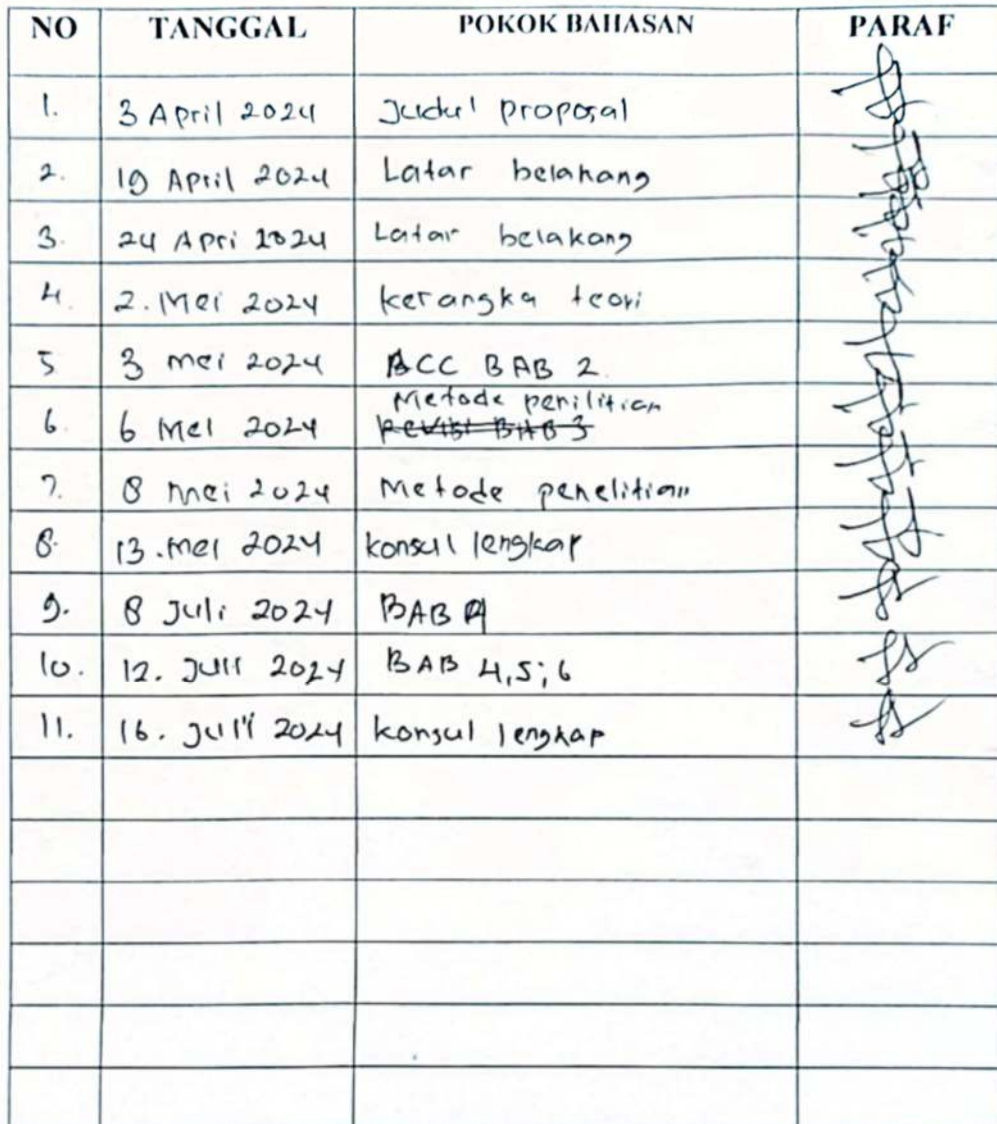 NO TANGGAL POKOK BAHASAN PARAF
1. 3 April 2024 Judul proposal
2. 19 April 2024 Latar belakang
3. 24 Apri 2024 Latar belakang
4. 2. Mei 2024 kerangka teori
5 3 mei 2024 ACC BAB 2.
Metode penilitian
6 6 Mei 2024 revisi BAB 3
7. 8 Mei 2024 Metode penelitian
8. 13. Mei 2024 konsul lengkap
9. 8 Juli 2024 BAB 4
10. 12. Juli 2024 BAB 4,5;6
11. 16. Juli 2024 konsul lengkap